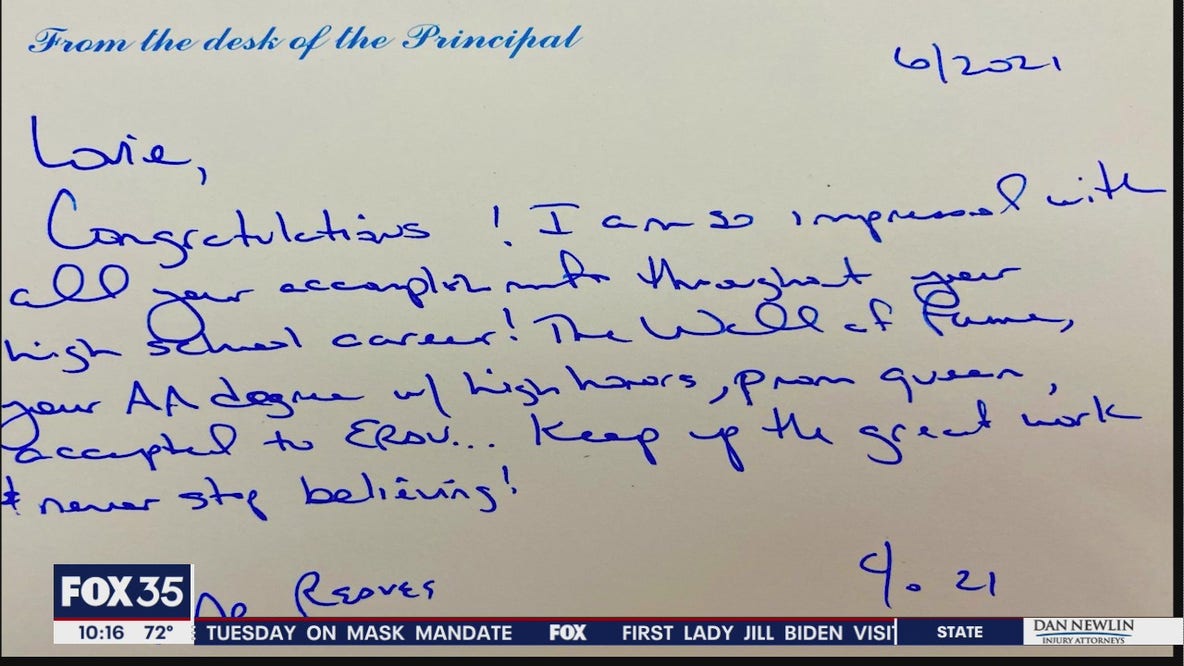 From the desk of the Principal
6/2021
Lorie,
Congratulations ! I am so impressed with
all your accomplishments throughout your
high school career! The Wall of Fame,
your AA degree w/ high honors, prom queen,
accepted to ERAU... Keep up the great work
& never stop believing!
Reaves
21
FOX 35
10:16 72°
TUESDAY ON MASK MANDATE FOX FIRST LADY JILL BIDEN VISI
STATE
DAN NEWLIN
INJURY ATTORNEYS